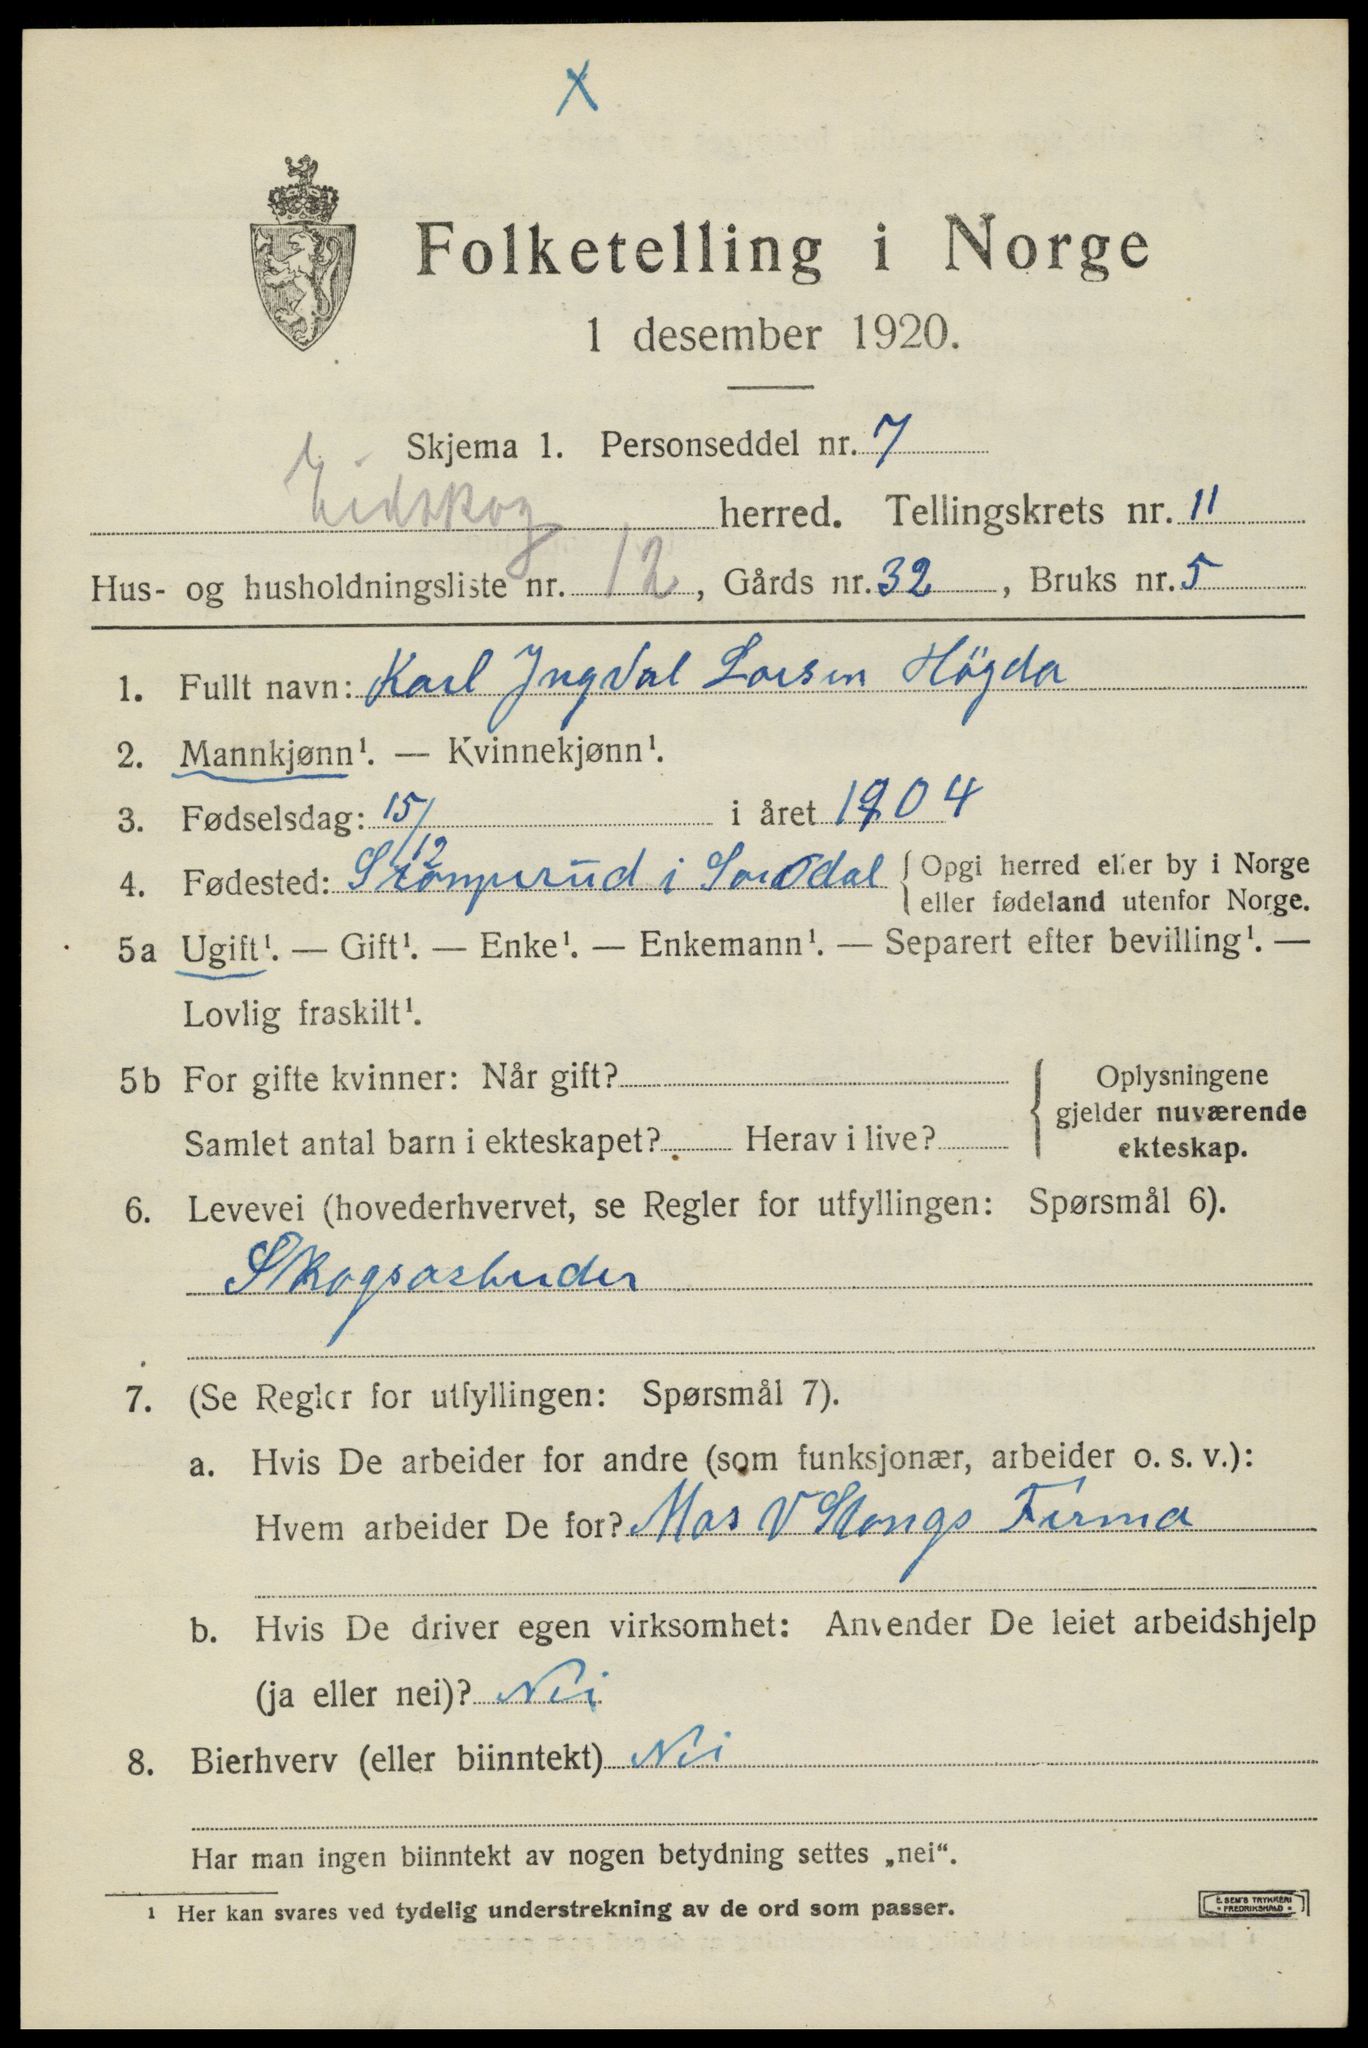 X
Folketelling i Norge
1 desember 1920.
Skjema 1. Personseddel nr. 7
Eidskog herred. Tellingskrets nr. 11
Hus- og husholdningsliste nr. 12, Gårds nr. 32, Bruks nr. 5
1. Fullt navn: Karl Ingval Larsen Högda
2. Mannkjønn¹. — Kvinnekjønn¹.
3. Fødselsdag: 15/12 i året 1904
4. Fødested: i Sør Odal { Opgi herred eller by i Norge
eller fødeland utenfor Norge.
5a Ugift¹. — Gift¹. — Enke¹. — Enkemann¹. — Separert efter bevilling¹. —
Lovlig fraskilt¹.
5b For gifte kvinner: Når gift? { Oplysningene
gjelder nuværende
Samlet antal barn i ekteskapet? Herav i live? ekteskap.
6. Levevei (hovederhvervet, se Regler for utfyllingen: Spørsmål 6).
Skogsarbeider
7. (Se Regler for utfyllingen: Spørsmål 7).
a. Hvis De arbeider for andre (som funksjonær, arbeider o. s. v.):
Hvem arbeider De for? Mas V Stangs Firma
b. Hvis De driver egen virksomhet: Anvender De leiet arbeidshjelp
(ja eller nei)? Nei
8. Bierhverv (eller biinntekt) Nei
Har man ingen biinntekt av nogen betydning settes „nei“.
¹ Her kan svares ved tydelig understrekning av de ord som passer.
E. SEM'S TRYKKERI
• FREDRIKSHALD •